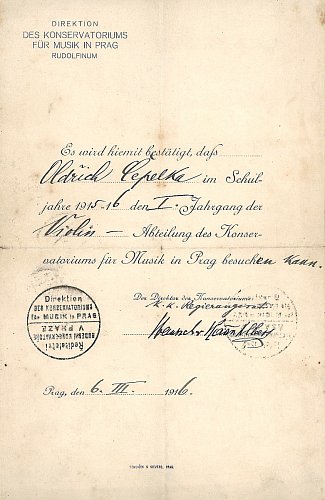 DIREKTION
DES KONSERVATORIUMS
FÜR MUSIK IN PRAG
RUDOLFINUM
Es wird hiemit bestätigt, daß
Oldřich Čepelka im Schul-
jahre 1915-16 den I. Jahrgang der
Violin — Abteilung des Konser-
vatoriums für Musik in Prag besuchen kann.
Der Direktor des Konservatoriums
k. k. Regierungsrat
Direktion
DES KONSERVATORIUMS
FÜR MUSIK IN PRAG
Ředitelství
V PRAZE
Prag, den 6. III. 1916